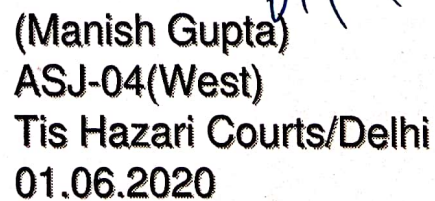 (Manish Gupta)
ASJ-04(West)
Tis Hazari Courts/Delhi
01.06.2020